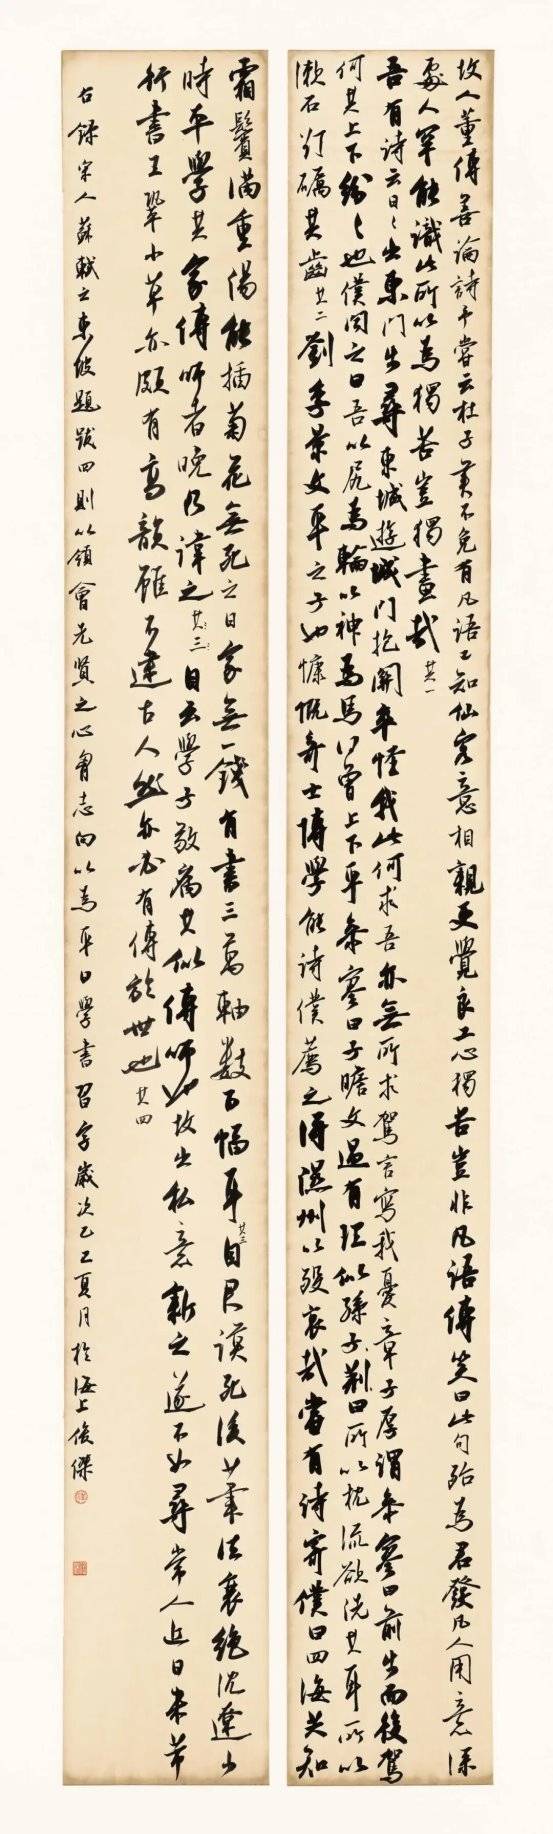 故人董傳善論詩予嘗云杜子美不免有凡語已知仙客意相親更覺良工心獨苦豈非凡語傳笑曰此句殆為君發凡人用意深
處人罕能識此所以為獨苦豈獨畫哉其一
吾有詩云日日出東門步尋東城遊城門抱關卒怪我此何求吾亦無所求駕言寫我憂章子厚謂參寥曰前步而後駕
何其上下紛紛也僕聞之曰吾以尻為輪以神為馬何曾上下乎參寥曰子瞻文過有理似孫子荊曰所以枕流欲洗其耳所以
漱石欲礪其齒其二劉季孫景文平之子也慷慨奇士博學能詩僕薦之得隰州以歿哀哉嘗有詩寄僕曰四海共知
霜鬢滿重陽能插菊花無死之日家無一錢有書三萬軸數百幅耳其三自君謨死後筆法衰絕沈遼少
時本學其家傳師者晚乃諱之其三自云學子敬病其似傳師也故出私意新之遂不如尋常人近日米芾
行書王鞏小草亦頗有高韻雖不逮古人然亦必有傳於世也其四
右錄宋人蘇軾之東坡題跋四則以領會先賢之心胸志向以為平日學書習字歲次乙巳夏月於海上俊傑